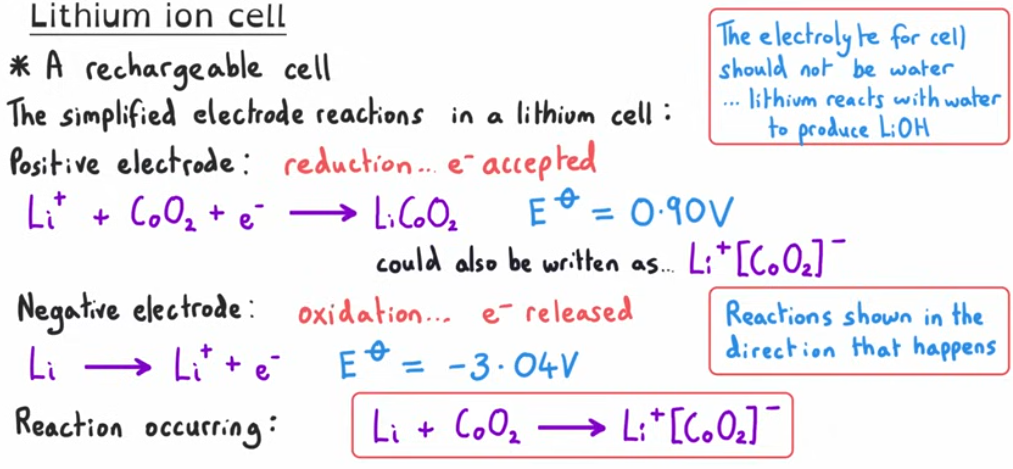 Lithium ion cell
* A rechargeable cell
The simplified electrode reactions in a lithium cell:
The electrolyte for cell
should not be water
... lithium reacts with water
to produce LiOH
Positive electrode: reduction... e⁻ accepted
Li⁺ + CoO₂ + e⁻ ⟶ LiCoO₂ E⦵ = 0.90V
could also be written as... Li⁺[CoO₂]⁻
Negative electrode: oxidation... e⁻ released
Li ⟶ Li⁺ + e⁻ E⦵ = -3.04V
Reactions shown in the
direction that happens
Reaction occurring: Li + CoO₂ ⟶ Li⁺[CoO₂]⁻